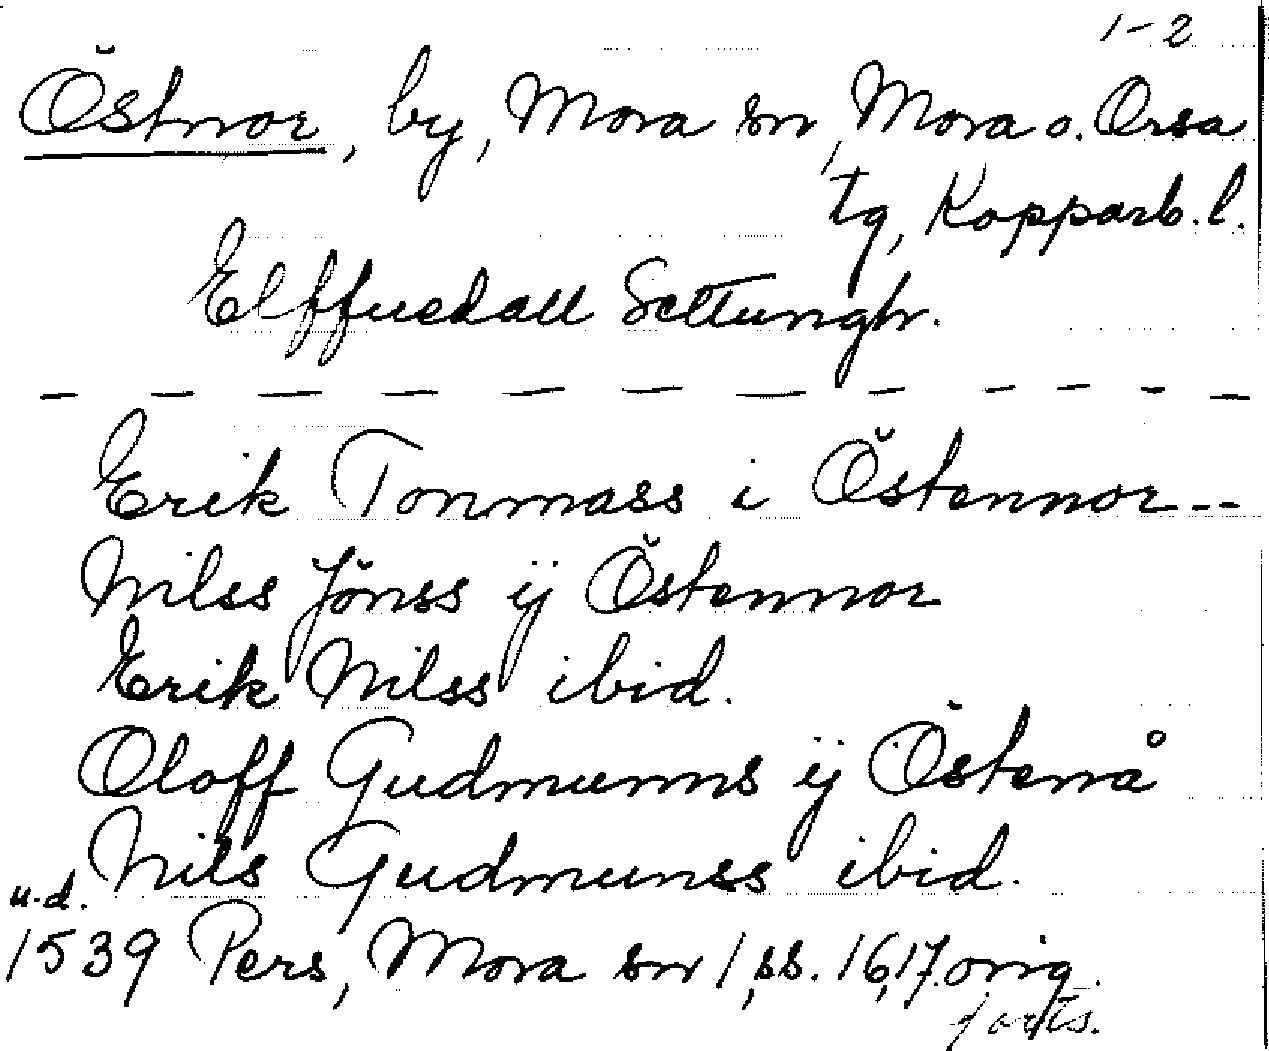 1-2
Östnor, by, Mora sn, Mora o. Orsa
tg, Kopparb. l.
Elffuedall Settungh.
Erik Tommass i Östennor--
Nilss Jönss ij Östennor
Erik Nilss ibid.
Oloff Gudmunns ij Östenå
Nils Gudmunss ibid.
u.d.
1539 Pers, Mora sn 1, ss. 16, 17. orig.
forts.